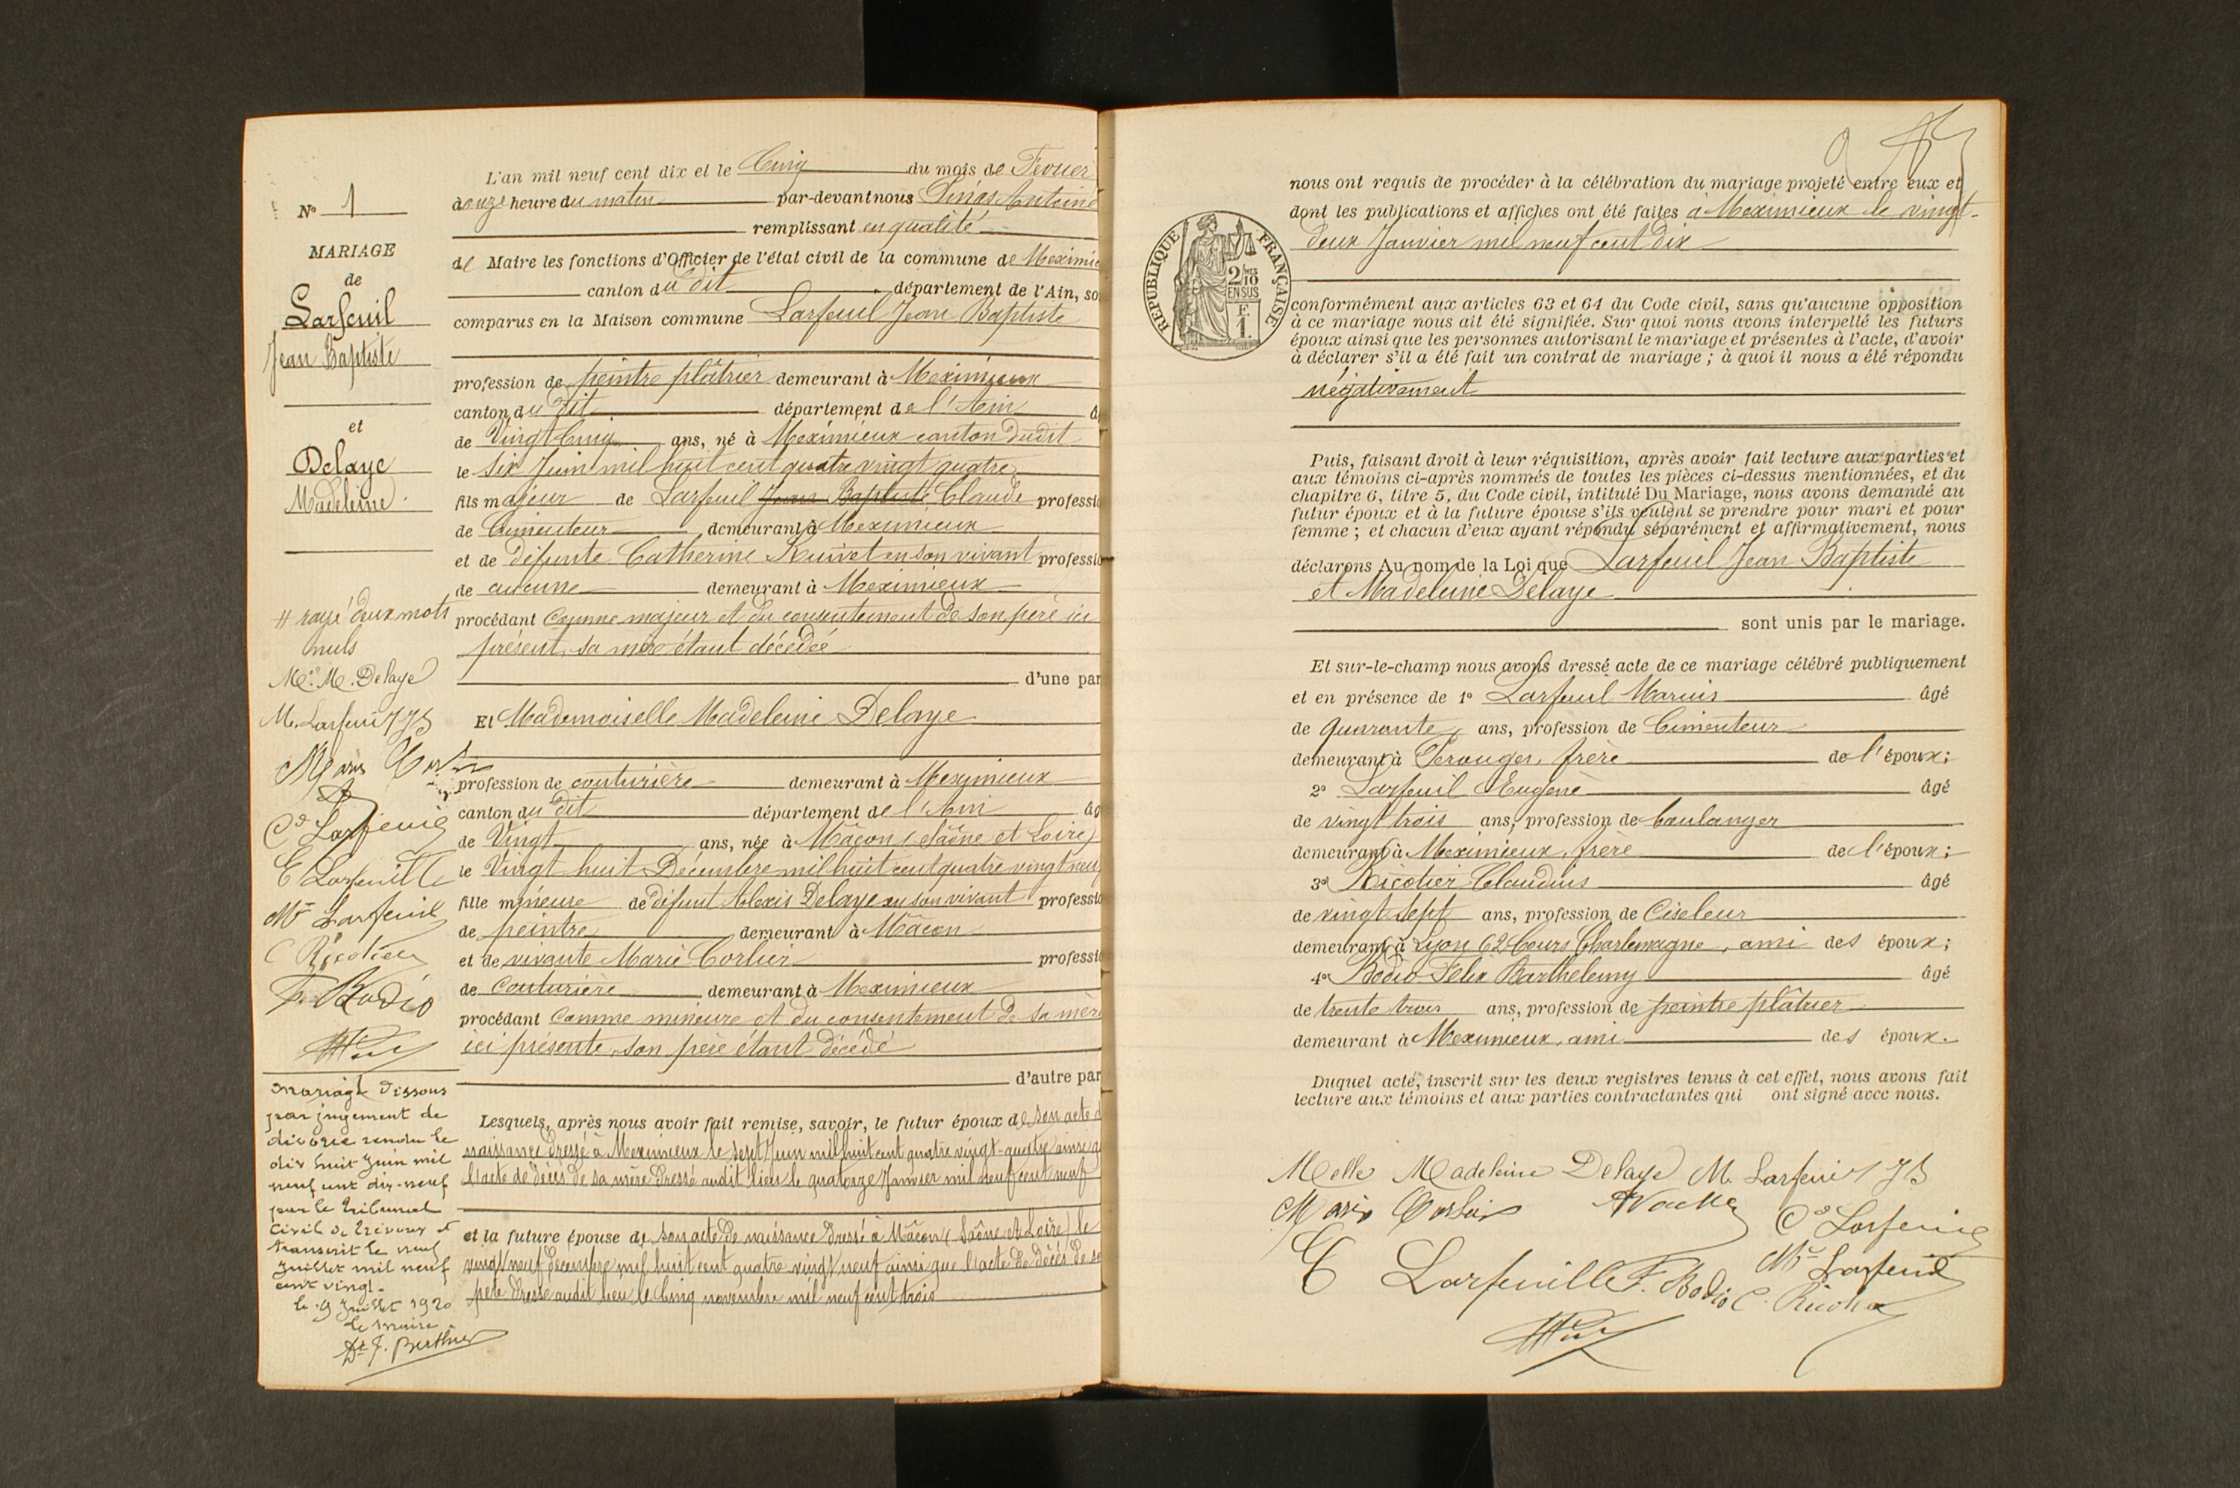 N° 1
MARIAGE
de
Larfeuil
Jean Baptiste
et
Delaye
Madeleine
# rayé deux mots
nuls
M. Delaye
M. Larfeuil JB
Cd Larfeuil
E Larfeuille
Mr Larfeuil
C Ricotier
F. Bodio
Mariage dissous
par jugement de
divorce rendu le
dix huit Juin mil
neuf cent dix-neuf
par le Tribunal
Civil de Trévoux et
transcrit le neuf
Juillet mil neuf
cent vingt.
le 9 Juillet 1920
le Maire
Dr J. Berthier
L'an mil neuf cent dix et le Cinq du mois de Fevrier
à onze heure du matin par-devant nous Antoine
remplissant en qualité
de Maire les fonctions d'Officier de l'état civil de la commune de Meximie
canton du dit département de l'Ain, so
comparus en la Maison commune Larfeuil Jean Baptiste
profession de peintre plâtrier demeurant à Meximieux
canton du dit département de l'Ain â
de Vingt Cinq ans, né à Meximieux canton dudit
le Six Juin mil huit cent quatre vingt quatre
fils majeur de Larfeuil Jean Baptiste Claude professi
de Cimenteur demeurant à Meximieux
et de défunte Catherine en son vivant professi
de aucune demeurant à Meximieux
procédant Comme majeur et du consentement de son père ici
présent, sa mère étant décédée
d'une par
Et Mademoiselle Madeleine Delaye
profession de couturière demeurant à Meximieux
canton du dit département de l'Ain âg
de Vingt ans, née à Mâcon (Saône et Loire)
le Vingt huit Décembre mil huit cent quatre vingt neuf
fille mineure de défunt Alexis Delaye en son vivant professi
de peintre demeurant à Mâcon
et de vivante Marie Corlier professi
de Couturière demeurant à Meximieux
procédant Comme mineure et du consentement de sa mère
ici présente, son père étant décédé
d'autre par
Lesquels, après nous avoir fait remise, savoir, le futur époux de son acte d
naissance dressé à Meximieux le sept Juin mil huit cent quatre vingt-quatre ainsi q
l'acte de décès de sa mère dressé audit lieu le quatorze Janvier mil neuf cent neuf
et la future épouse de son acte de naissance dressé à Mâcon (Saône et Loire) le
vingt neuf Décembre mil huit cent quatre vingt neuf ainsi que l'acte de décès de so
père dressé audit lieu le Cinq novembre mil neuf cent trois
nous ont requis de procéder à la célébration du mariage projeté entre eux et
dont les publications et affiches ont été faites à Meximieux le vingt-
deux Janvier mil neuf cent dix
RÉPUBLIQUE FRANÇAISE
2/10
EN SUS
F.
1.
conformément aux articles 63 et 64 du Code civil, sans qu'aucune opposition
à ce mariage nous ait été signifiée. Sur quoi nous avons interpellé les futurs
époux ainsi que les personnes autorisant le mariage et présentes à l'acte, d'avoir
à déclarer s'il a été fait un contrat de mariage ; à quoi il nous a été répondu
négativement
Puis, faisant droit à leur réquisition, après avoir fait lecture aux parties et
aux témoins ci-après nommés de toutes les pièces ci-dessus mentionnées, et du
chapitre 6, titre 5, du Code civil, intitulé Du Mariage, nous avons demandé au
futur époux et à la future épouse s'ils veulent se prendre pour mari et pour
femme ; et chacun d'eux ayant répondu séparément et affirmativement, nous
déclarons Au nom de la Loi que Larfeuil Jean Baptiste
et Madeleine Delaye
sont unis par le mariage.
Et sur-le-champ nous avons dressé acte de ce mariage célébré publiquement
et en présence de 1° Larfeuil Marius âgé
de quarante ans, profession de Cimenteur
demeurant à Perouges, frère de l'époux;
2° Larfeuil Eugène âgé
de vingt trois ans, profession de boulanger
demeurant à Meximieux, frère de l'époux;
3° Ricotier Claudius âgé
de vingt sept ans, profession de Ciseleur
demeurant à Lyon 62 Cours Charlemagne, ami des époux;
4° Bodio Félix Barthelemy âgé
de trente trois ans, profession de peintre plâtrier
demeurant à Meximieux, ami des époux.
Duquel acte, inscrit sur les deux registres tenus à cet effet, nous avons fait
lecture aux témoins et aux parties contractantes qui ont signé avec nous.
Melle Madeleine Delaye M. Larfeuil JB
Cd Larfeuil
Mr Larfeuil
E Larfeuille F. Bodio C. Ricotier